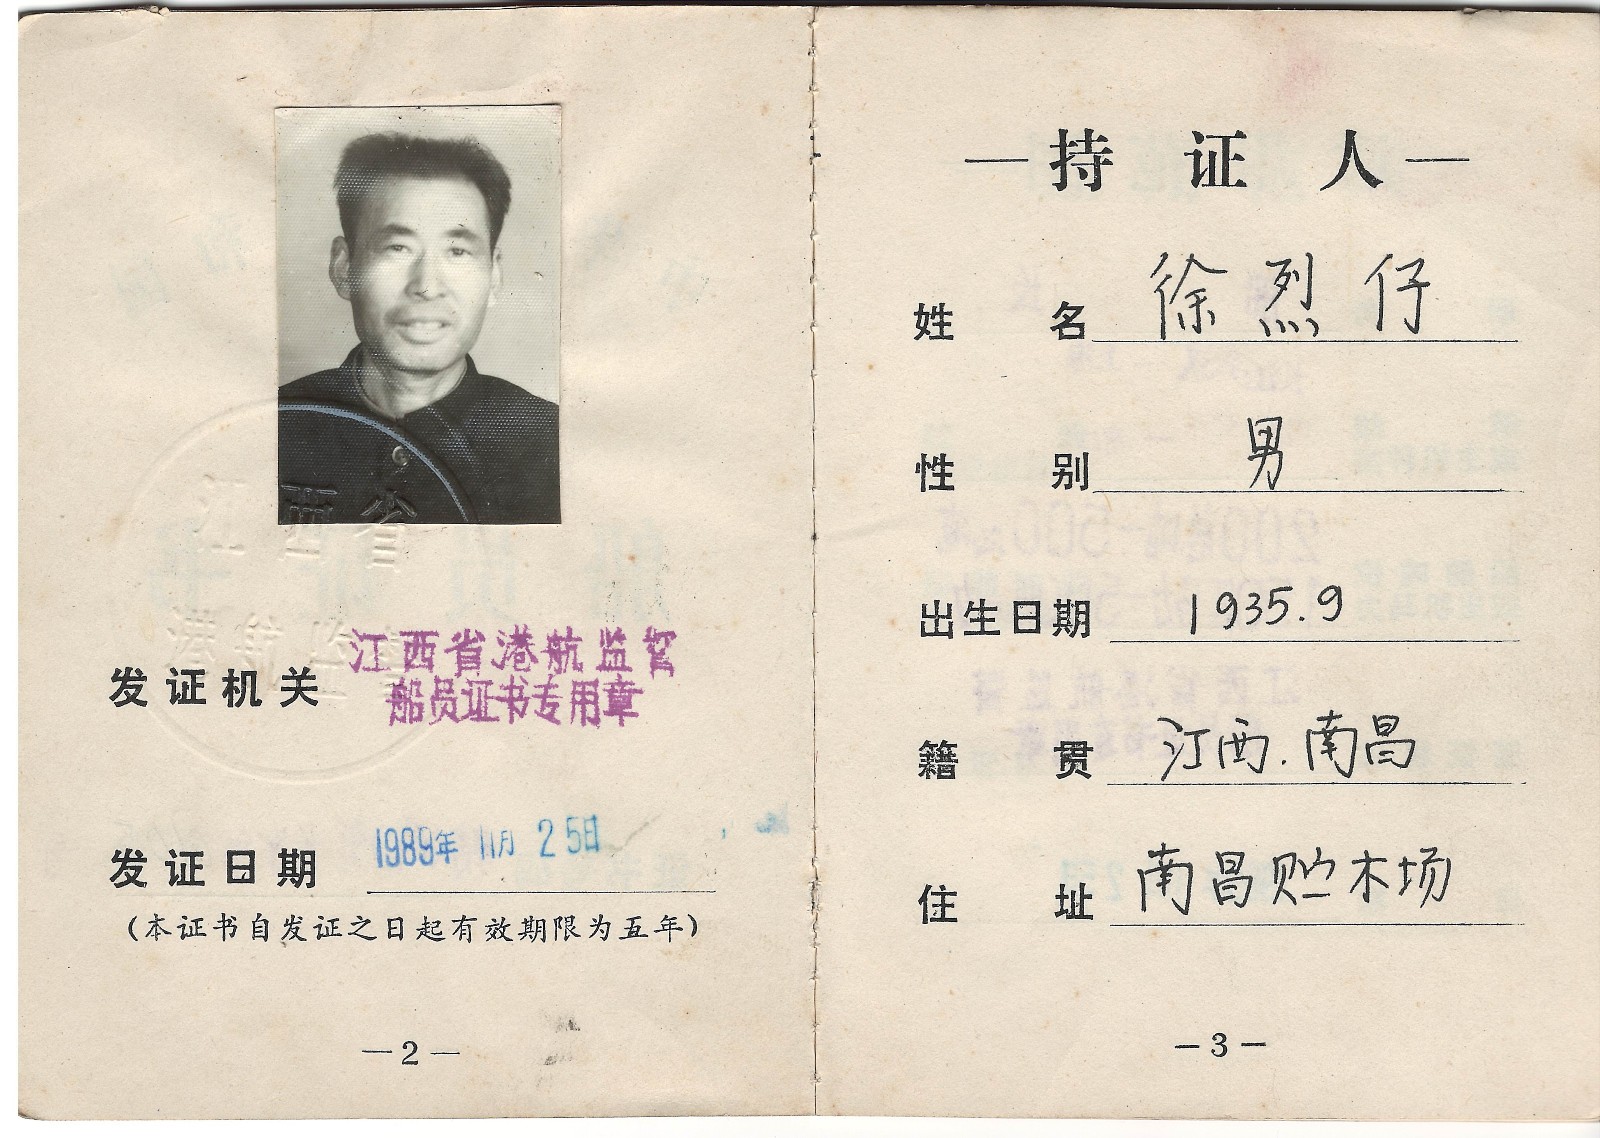 江西省
发证机关 江西省港航监督
船员证书专用章
发证日期 1989年 11月 25日
(本证书自发证之日起有效期限为五年)
—2—
—持证人—
姓名 徐烈仔
性别 男
出生日期 1935.9
籍贯 江西.南昌
住址 南昌贮木场
—3—